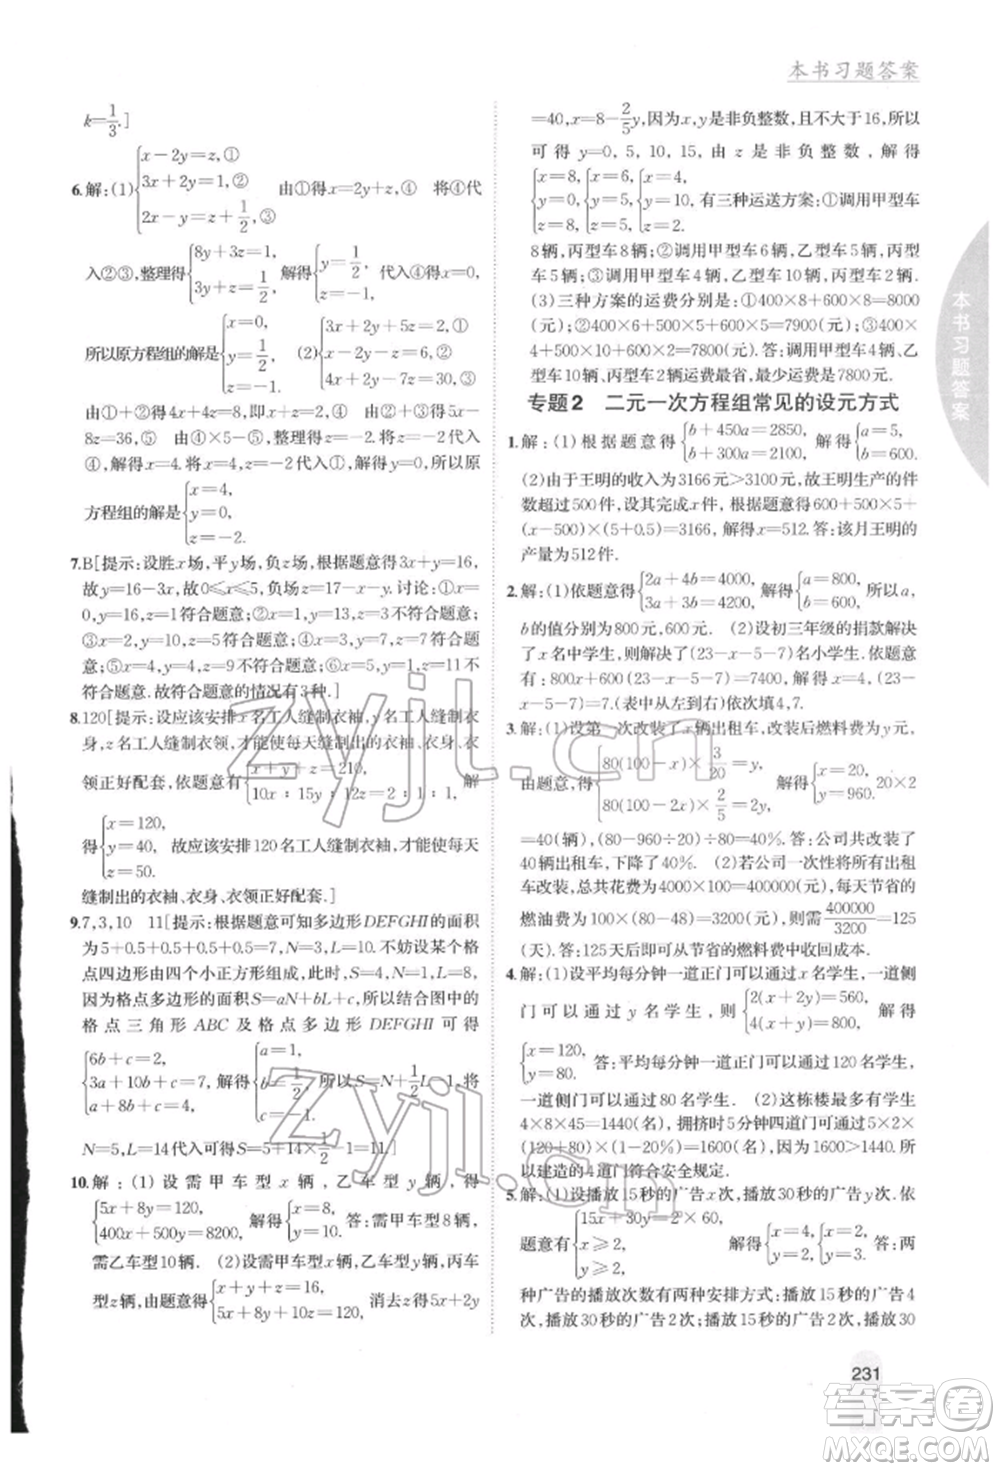 本书习题答案
k=1/3.]
6.解:(1){x-2y=z,① 3x+2y=1,② 2x-y=z+1/2,③ 由①得x=2y+z,④ 将④代
入②③,整理得{8y+3z=1, 3y+z=1/2, 解得{y=1/2, z=-1, 代入④得x=0,
所以原方程组的解是{x=0, y=1/2, z=-1. (2){3x+2y+5z=2,① x-2y-z=6,② 4x+2y-7z=30,③
①+②,得4x+4z=8,即x+z=2,④ ②+③,得5x-
8z=36,⑤ 由④×5-⑤,整理得z=-2,代入④,得x=
4,将x=4,z=-2代入②,解得y=0,所以原
方程组的解是{x=4, y=0, z=-2.
7.B[提示:设胜x场,平y场,负z场,根据题意得3x+y=16,
故y=16-3x,故0≤x≤5,负场z=17-x-y.讨论:①x=
0,y=16,z=1不符合题意;②x=1,y=13,z=3符合题意;
③x=2,y=10,z=5符合题意;④x=3,y=7,z=7符合题
意;⑤x=4,y=4,z=9符合题意;⑥x=5,y=1,z=11不
符合题意.故符合题意的情况有3种.]
8.120[提示:设应该安排x名工人缝制衣袖,y名工人缝制衣
身,z名工人缝制衣领,才能使每天缝制出的衣袖、衣身、衣
领正好配套,依题意有{x+y+z=210, 10x:15y:12z=2:1:1. 解
得{x=120, y=40, z=50. 故应该安排120名工人缝制衣袖,才能使每天
缝制出的衣袖、衣身、衣领正好配套.]
9.7,3,10 11[提示:根据题意可知多边形DEFGHI的面积
为5+0.5+0.5+0.5+0.5=7,N=3,L=10.不妨设某个格
点四边形由四个小正方形组成,此时,S=4,N=1,L=8.
因为格点多边形的面积S=aN+bL+c,所以结合图中的
格点三角形ABC及格点多边形DEFGHI可得
{6b+c=2, 3a+10b+c=7, a+8b+c=4, 解得{a=1, b=1/2, c=-1. 所以S=N+1/2L-1.将
N=5,L=14代入可得S=5+14×1/2-1=11.]
10.解:(1)设需甲车型x辆,乙车型y辆,得
{5x+8y=120, 400x+500y=8200, 解得{x=8, y=10. 答:需甲车型8辆,
需乙车型10辆. (2)设需甲车型x辆,乙车型y辆,丙车
型z辆,由题意得{x+y+z=16, 5x+8y+10z=120, 消去z得5x+2y
=40,x=8-2/5y,因为x,y是非负整数,且不大于16,所以
可得y=0,5,10,15,由z是非负整数,解得
{x=8, y=0, z=8, {x=6, y=5, z=5, {x=4, y=10, z=2. 有三种运送方案:①调用甲型车
8辆,丙型车8辆;②调用甲型车6辆,乙型车5辆,丙型车
5辆;③调用甲型车4辆,乙型车10辆,丙型车2辆.
(3)三种方案的运费分别是:①400×8+600×8=8000
(元);②400×6+500×5+600×5=7900(元);③400×
4+500×10+600×2=7800(元).答:调用甲型车4辆、乙
型车10辆、丙型车2辆运费最省,最少运费是7800元.
专题2 二元一次方程组常见的设元方式
1.解:(1)根据题意得{b+450a=2850, b+300a=2100, 解得{a=5, b=600.
(2)由于王明的收入为3166元>3100元,故王明生产的件
数超过500件,设其完成x件,根据题意得600+500×5+
(x-500)×(5+0.5)=3166,解得x=512.答:该月王明的
产量为512件.
2.解:(1)依题意得{2a+4b=4000, 3a+3b=4200, 解得{a=800, b=600. 所以a,
b的值分别为800元,600元. (2)设初三年级的捐款解决
了x名中学生,则解决了(23-x-5-7)名小学生.依题意
有:800x+600(23-x-5-7)=7400,解得x=4,23-x-
5-7=7.(表中从左到右)依次填4,7.
3.解:(1)设第一次改装了x辆出租车,改装后燃料费为y元,
由题意,得{80(100-x)×3/20=xy, 80(100-2x)×2/5=2xy, 解得{x=20, y=960. 20×2
=40(辆),(80-960÷20)÷80=40%.答:公司共改装了
40辆出租车,下降了40%. (2)若公司一次性将所有出租
车改装,总共花费为4000×100=400000(元),每天节省的
燃油费为100×(80-48)=3200(元),则需400000/3200=125
(天).答:125天后从节省的燃料费中收回成本.
4.解:(1)设平均每分钟一道正门可通过x名学生,一道侧
门可以通过y名学生,则{2(x+2y)=560, 4(x+y)=800, 解得
{x=120, y=80. 答:平均每分钟一道正门可以通过120名学生,
一道侧门可以通过80名学生. (2)这栋楼最多有学生
4×8×45=1440(名),拥挤时5分钟四道门可通过5×2×
(120+80)×(1-20%)=1600(名),因为1600>1440.所
以建造的4道门符合安全规定.
5.解:(1)设播放15秒的广告x次,播放30秒的广告y次,由
题意有{15x+30y=2×60, x≥2, y≥2, 解得{x=4, y=2, {x=2, y=3, 答:两
种广告的播放次数有两种安排方式:播放15秒的广告4
次,播放30秒的广告2次;播放15秒的广告2次,播放30
本书习题答案
231
zyjl.cn
zyjl.cn
答案圈
MXQE.COM